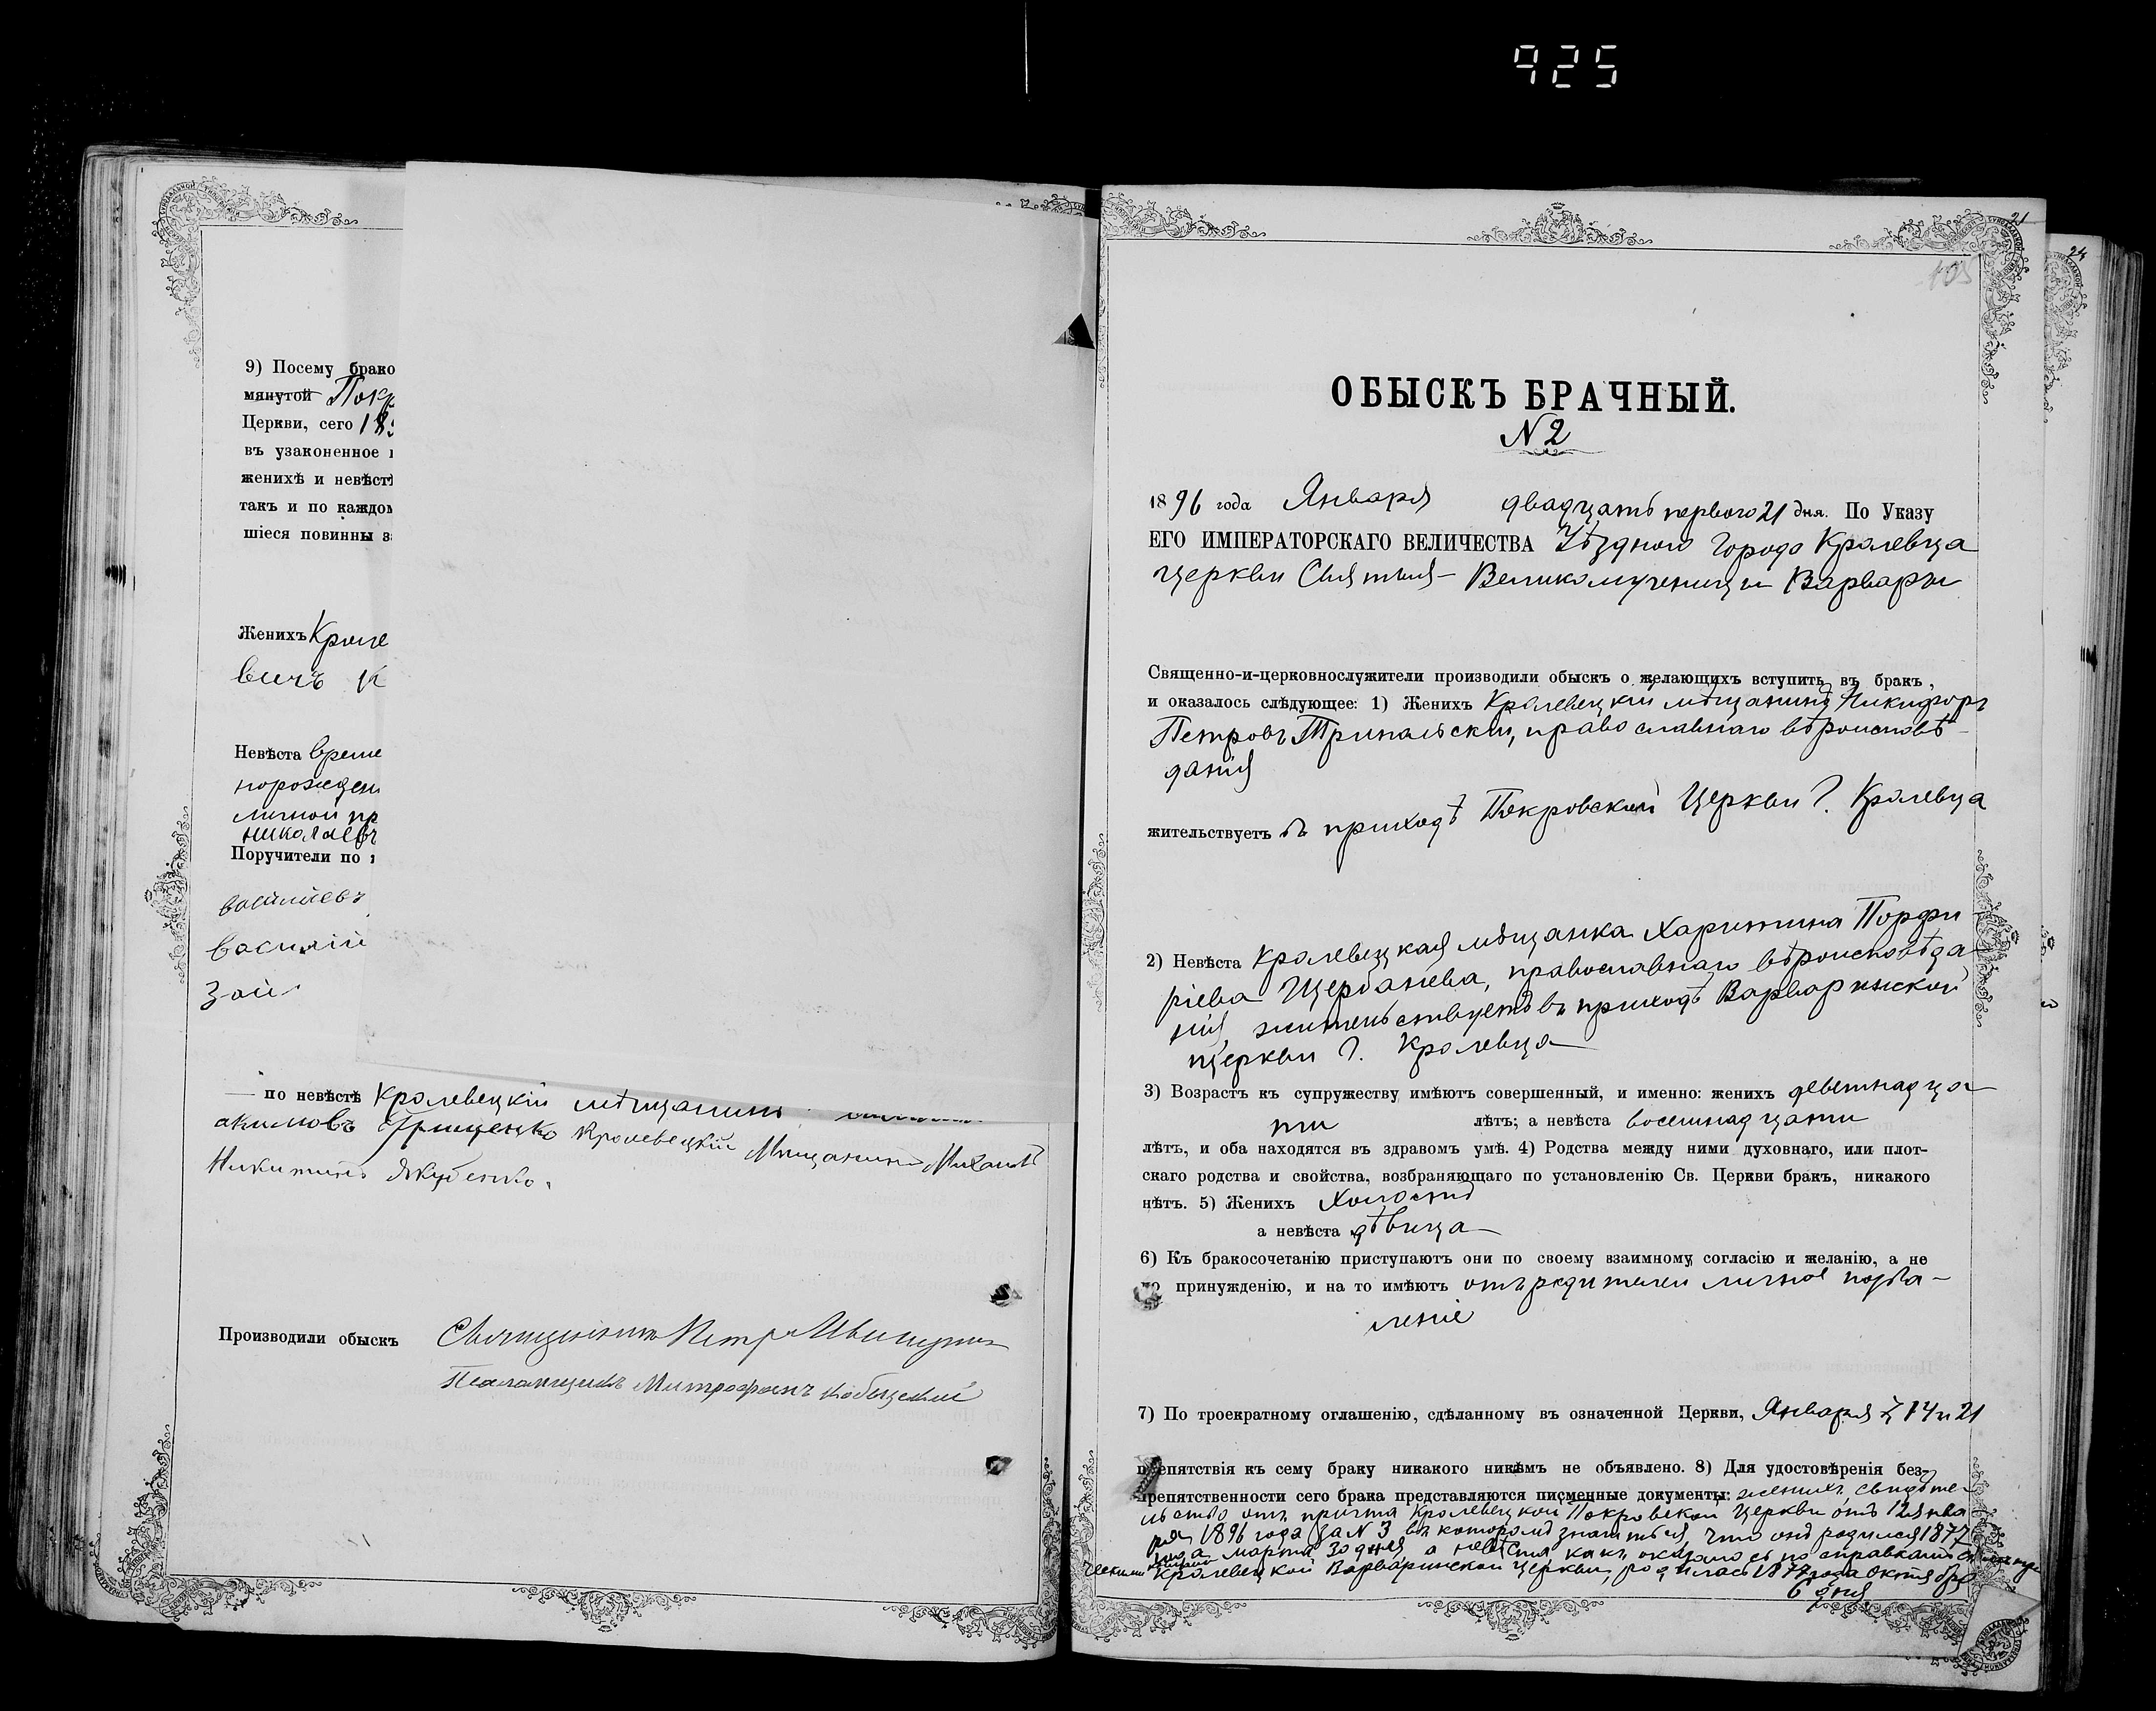 925
9) Посему брако
мянутой Покр
Церкви, сего 189
въ узаконенное
женихѣ и невѣст
такъ и по каждом
шіеся повинны з
Женихъ Кроле
вичъ К
Невѣста време
порожден
личной пр
николаевъ
Поручители по
васильевъ
василій
— по невѣстѣ Кролевецкій мѣщанинъ
акимовъ Грищенко Кролевецкій Мѣщанинъ Михаилъ
Никитинъ Якубенко.
Производили обыскъ Священникъ Петръ
Псаломщикъ Митрофанъ
21
24
105
ОБЫСКЪ БРАЧНЫЙ.
N 2
1896 года Января двадцать перваго 21 дня. По Указу
ЕГО ИМПЕРАТОРСКАГО ВЕЛИЧЕСТВА Уѣзднаго Города Кролевца
Церкви Святыя Великомученицы Варвары
Священно-и-церковнослужители производили обыскъ о желающихъ вступить въ бракъ,
и оказалось слѣдующее: 1) Женихъ Кролевецкій мѣщанинъ Никифоръ
Петровъ Трипальскій, православнаго вѣроисповѣ-
данія
жительствуетъ въ приходѣ Покровской Церкви Г. Кролевца
2) Невѣста Кролевецкая мѣщанка Харитина Порфи
ріева Щербанева, православнаго вѣроисповѣда
нія, жительствуетъ въ приходѣ Варваринской
церкви Г. Кролевца
3) Возрастъ къ супружеству имѣютъ совершенный, и именно: женихъ девятнадца-
ти лѣтъ; а невѣста восемнадцати
лѣтъ, и оба находятся въ здравомъ умѣ. 4) Родства между ними духовнаго, или плот-
скаго родства и свойства, возбраняющаго по установленію Св. Церкви бракъ, никакого
нѣтъ. 5) Женихъ холостъ
а невѣста дѣвица
6) Къ бракосочетанію приступаютъ они по своему взаимному согласію и желанію, а не
по принужденію, и на то имѣютъ отъ родителей личное позво-
леніе
7) По троекратному оглашенію, сдѣланному въ означенной Церкви, Января 7, 14 и 21
препятствія къ сему браку никакого никѣмъ не объявлено. 8) Для удостовѣренія без-
препятственности сего брака представляются письменные документы: женихъ свидѣте-
льство отъ причта Кролевецкой Покровской Церкви отъ 12 Янва
ря 1896 года за N 3 въ которомъ значится, что онъ родился 1877
года марта 30 дня а невѣста какъ оказалось по справкамъ съ метри
ческими книгами Кролевецкой Варваринской Церкви, родилась 1877 года Октября
6 дня